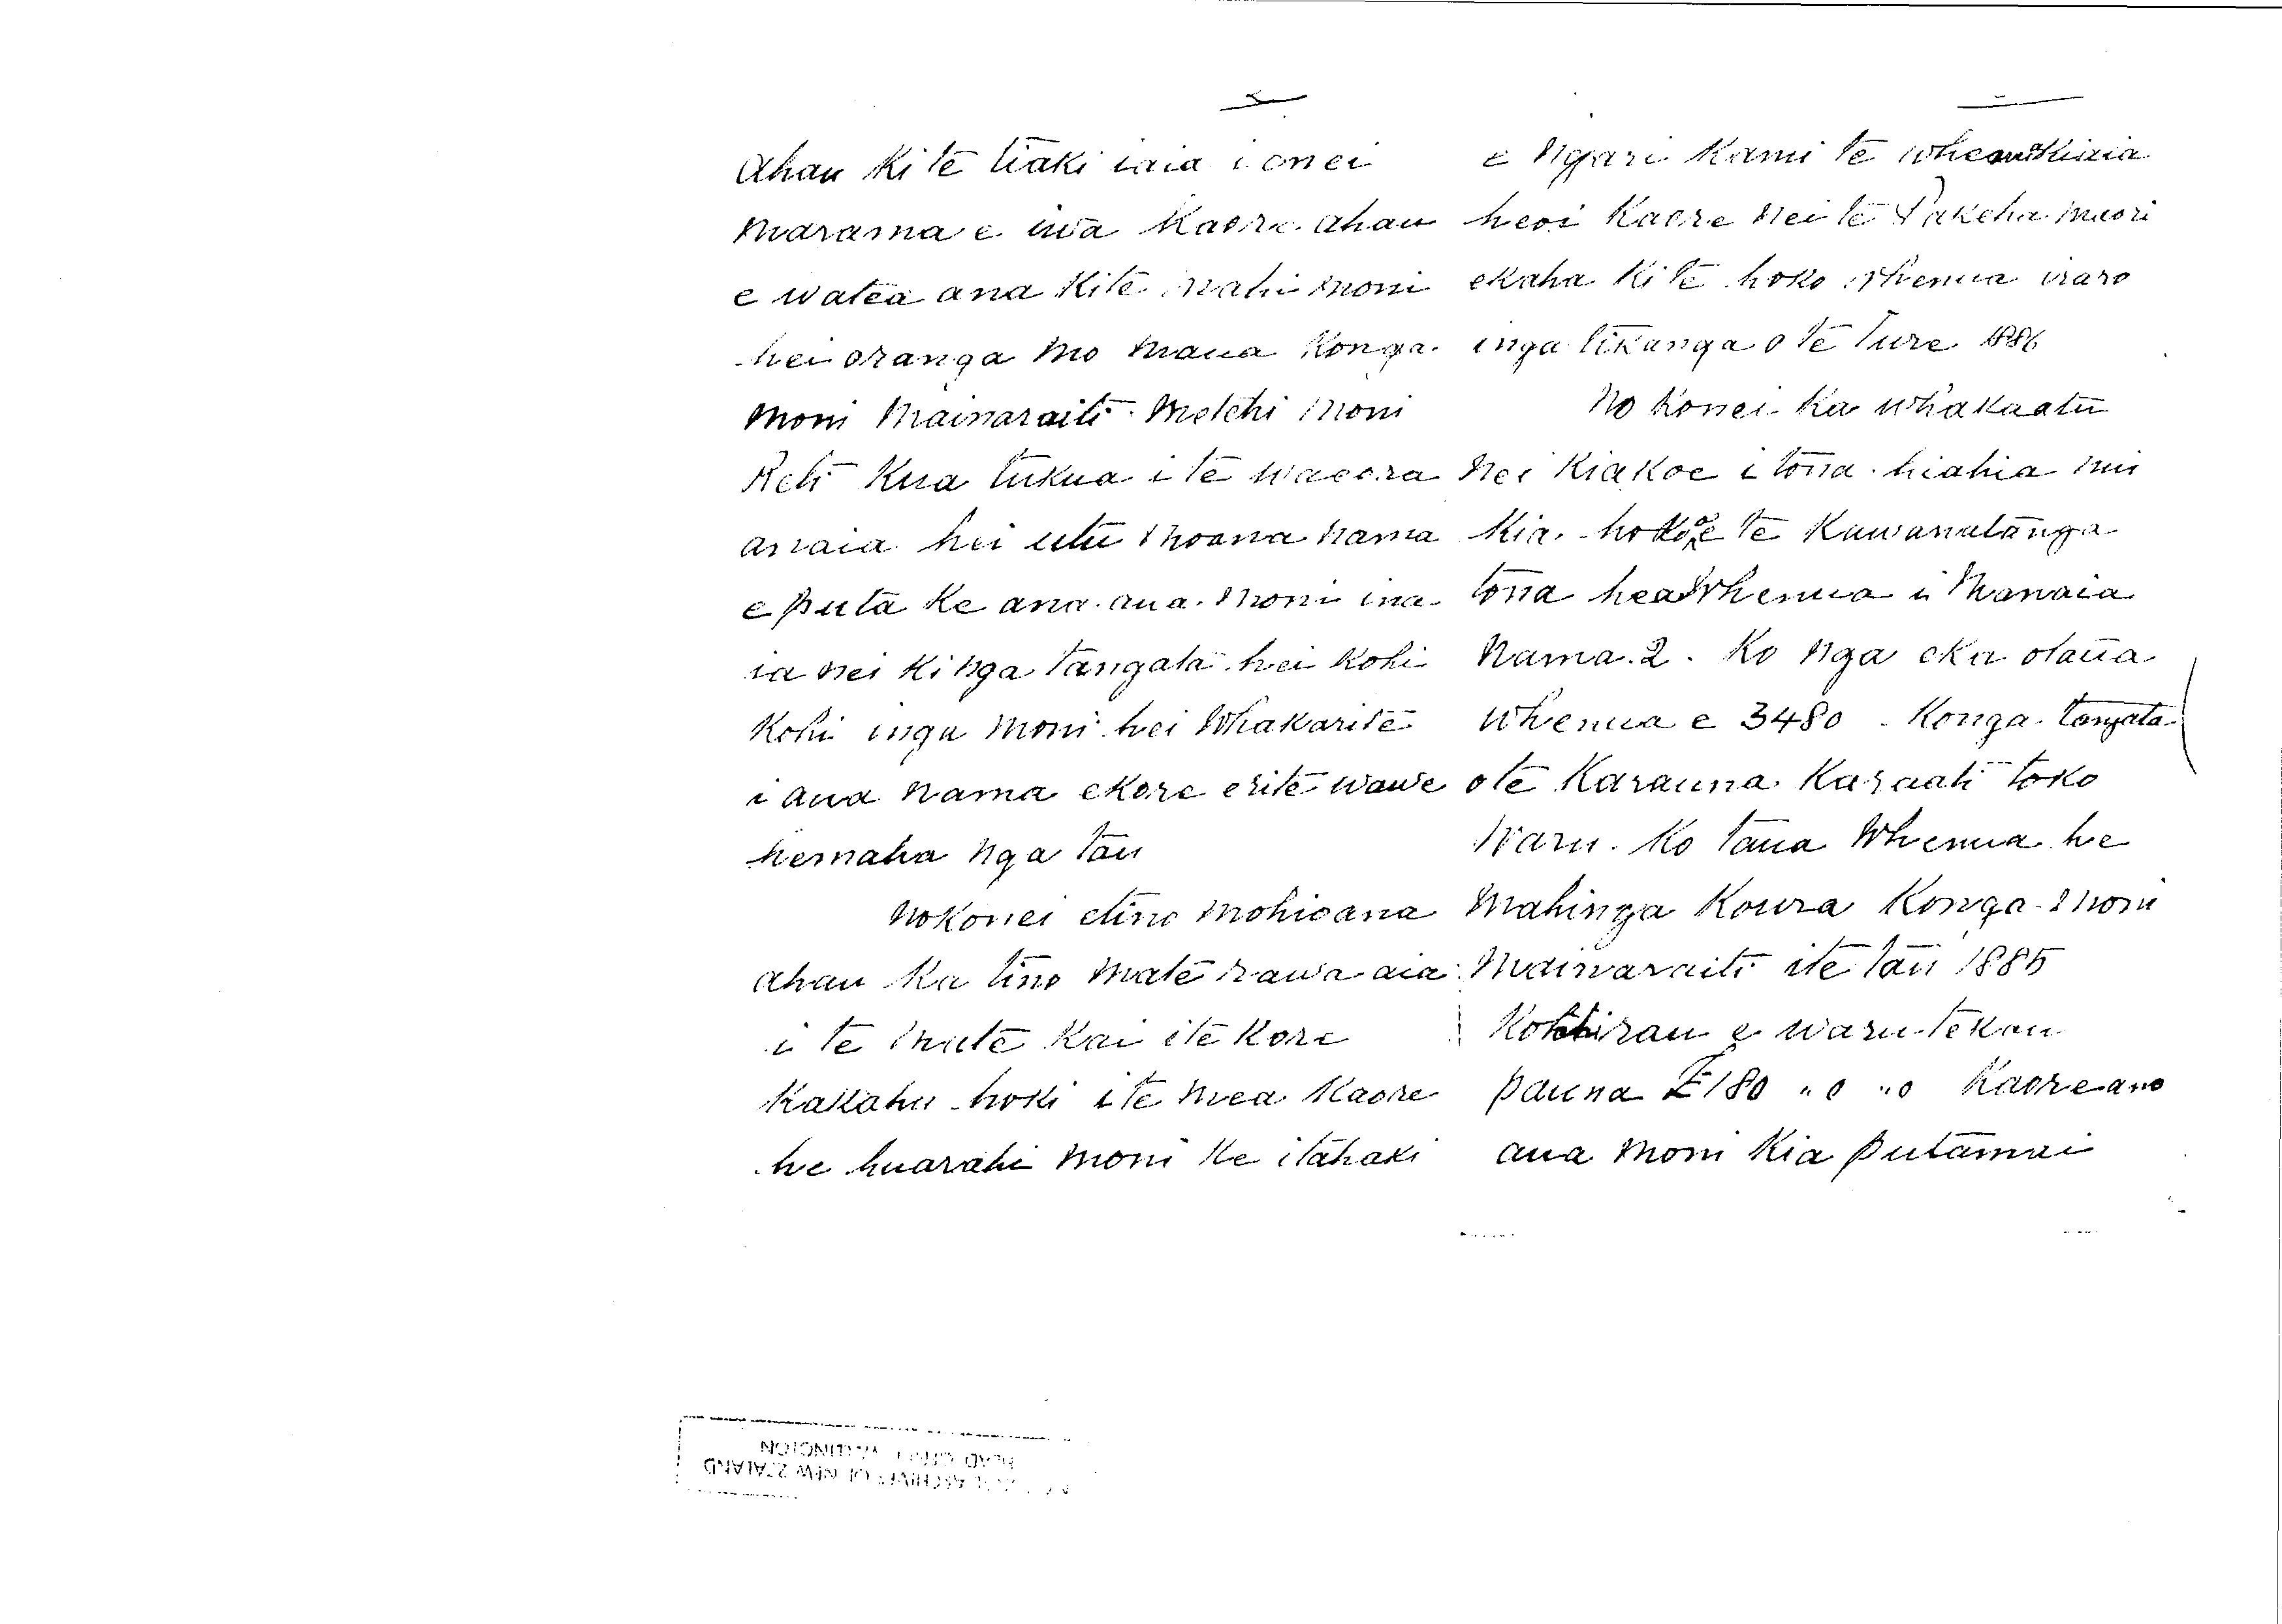 Ahau ki te tiaki iaia i onei
marama e iwa Kaore ahau
e watea ana kite mahi moni
hei oranga mo maua Konga
moni Mainaraiti Metehi moni
Reti Kua tukua i te waeora
anaia hei utu moana nama
e puta ke ana aua moni ina
ia nei ki nga tangata hei kohi
Kohi inga moni hei Whakarite
i aua nama ekore erite wawe
hemaha nga tau
Nokonei etino mohioana
ahau ka tino mate rawa aia
i te mate kai ite kore
Kakahu hoki ite mea Kaore
he huarahi moni ke itahaki
e Ngari Kanui te
heoi Kaore nei te Pakeha maori
ekaha ki te hoko whenua iraro
inga tikanga o te Ture 1886
No Konei ka whakaatu
nei kiakoe i tona hiahia nui
kia hokoe te Kawanatanga
tona hea Whenua i Manaia
Nama 2. Ko nga eka otaua
whenua e 3480 . Konga tangata
ote Karauna Karaati toko
Waru. Ko taua Whenua he
Mahinga Koura Konga moni
Mainaraiti ite tau 1885
Kotahirau e waru tekau
pauna £180 "0 "0 Kaore ano
aua moni kia putamai
ARCHIVES OF NEW ZEALAND
HEAD OFFICE WELLINGTON